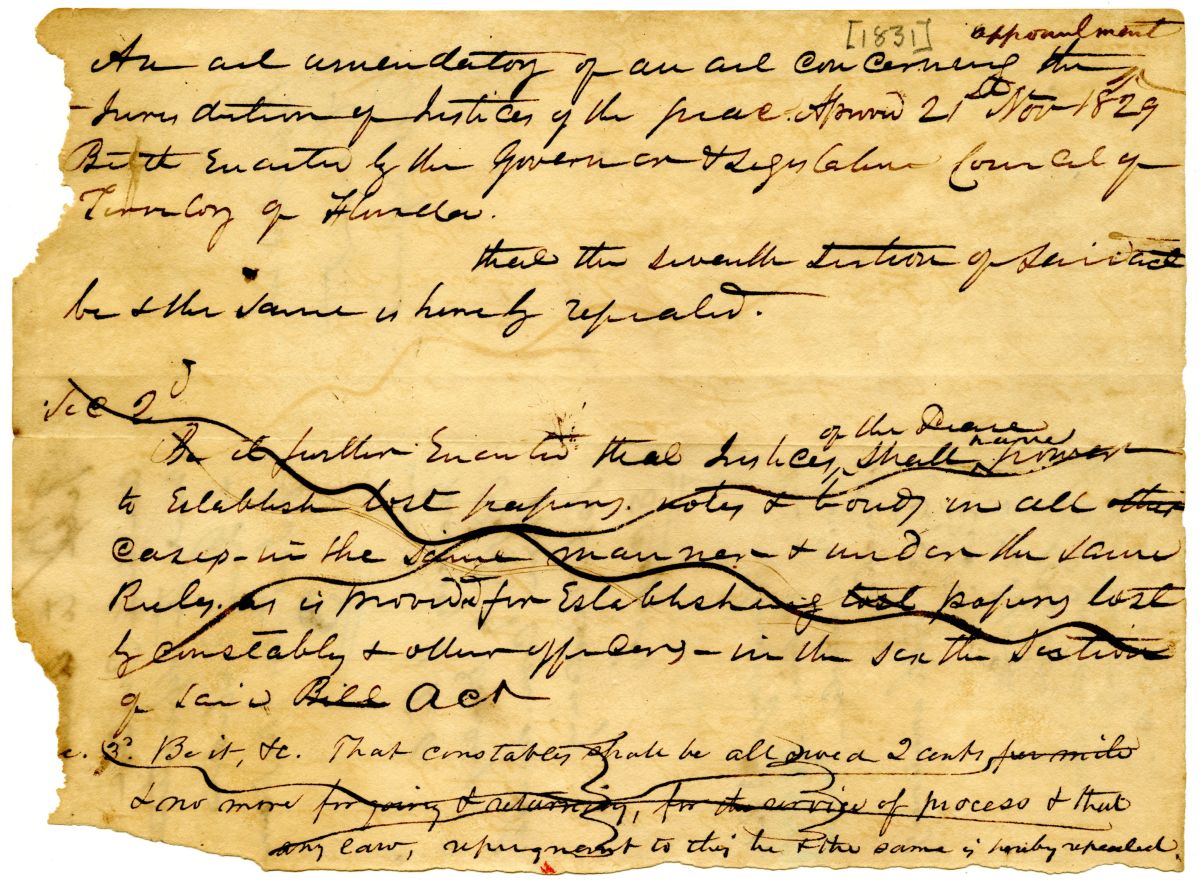 [1831] appointment
An act amendatory of an act concerning the
Jurisdiction of Justices of the peace. Aprovd 21st Nov 1829
Be it Enacted by the Governor & Legislative Council of
Territory of Florida.
that the seventh section of said act
be & the same is hereby repealed.
Sec 2d
of the Peace have
Be it further Enacted that Justices, shall, power
to Establish lost papers. notes & bonds in all this
cases - in the same manner & under the same
Rules. as is provided for Establishing lost papers lost
by constables & other officers - in the sixth Section
of said Bill Act
c. 3d. Be it, &c. That constables shall be allowed 2 cents per mile
& no more for going & returning, for the service of process & that
any law, repugnant to this be & the same is hereby repealed.